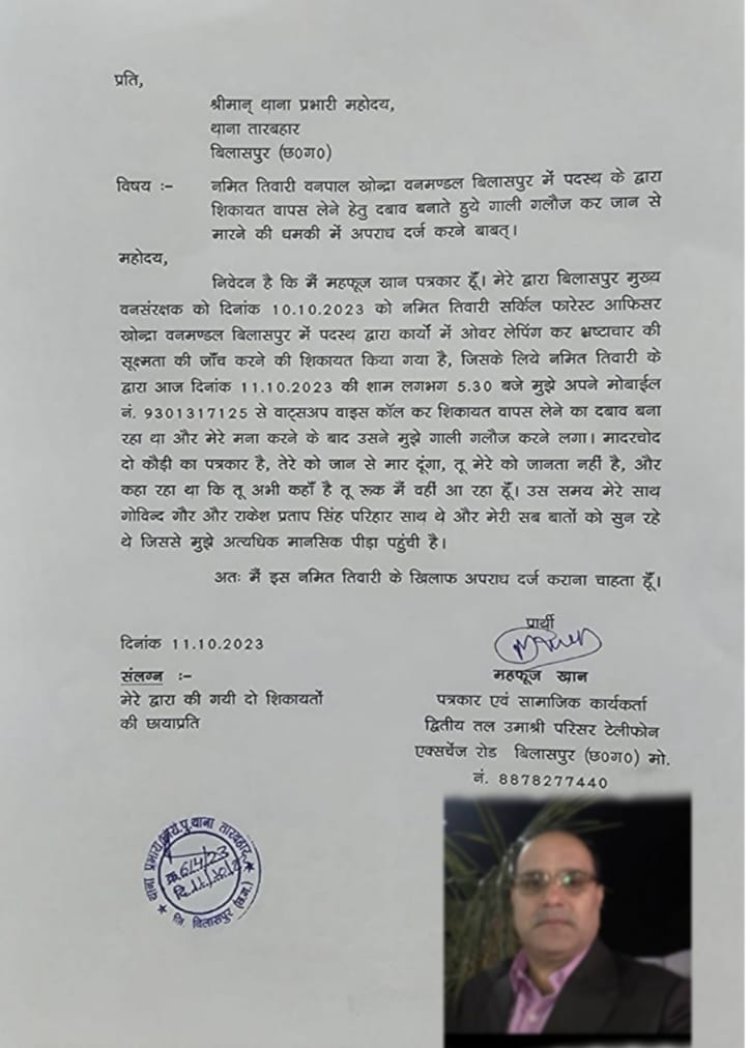 प्रति,
श्रीमान् थाना प्रभारी महोदय,
थाना तारबहार
बिलासपुर (छ0ग0)
विषय :– नमित तिवारी वनपाल खोन्द्रा वनमण्डल बिलासपुर में पदस्थ के द्वारा
शिकायत वापस लेने हेतु दबाव बनाते हुये गाली गलौज कर जान से
मारने की धमकी में अपराध दर्ज करने बाबत्।
महोदय,
निवेदन है कि मैं महफूज खान पत्रकार हूँ। मेरे द्वारा बिलासपुर मुख्य
वनसंरक्षक को दिनांक 10.10.2023 को नमित तिवारी सर्किल फारेस्ट आफिसर
खोन्द्रा वनमण्डल बिलासपुर में पदस्थ द्वारा कार्यो में ओवर लेपिंग कर भ्रष्टाचार की
सूक्ष्मता की जाँच करने की शिकायत किया गया है, जिसके लिये नमित तिवारी के
द्वारा आज दिनांक 11.10.2023 की शाम लगभग 5.30 बजे मुझे अपने मोबाईल
नं. 9301317125 से वाट्सअप वाइस कॉल कर शिकायत वापस लेने का दबाव बना
रहा था और मेरे मना करने के बाद उसने मुझे गाली गलौज करने लगा। मादरचोद
दो कौड़ी का पत्रकार है, तेरे को जान से मार दूंगा, तू मेरे को जानता नहीं है, और
कहा रहा था कि तू अभी कहाँ है तू रूक मैं वहीं आ रहा हूँ। उस समय मेरे साथ
गोविन्द गौर और राकेश प्रताप सिंह परिहार साथ थे और मेरी सब बातों को सुन रहे
थे जिससे मुझे अत्यधिक मानसिक पीड़ा पहुंची है।
अतः मैं इस नमित तिवारी के खिलाफ अपराध दर्ज कराना चाहता हूँ।
प्रार्थी
दिनांक 11.10.2023
महफूज खान
संलग्न :–
मेरे द्वारा की गयी दो शिकायतों
की छायाप्रति
पत्रकार एवं सामाजिक कार्यकर्ता
द्वितीय तल उमाश्री परिसर टेलीफोन
एक्सचेंज रोड बिलासपुर (छ0ग0) मो.
नं. 8878277440
थाना प्रभारी थाना तारबहार
जि. बिलासपुर (छ.ग.)